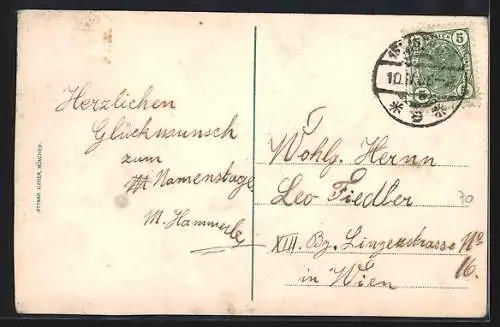 Herzlichen
Glückwunsch
zum
Namenstage
M. Hammerle
OTTMAR ZIEHER, MÜNCHEN.
T
Wohlg. Herrn
Leo Fiedler
XIII. Bz. Linzerstrasse No
16.
in Wien
70
5
10.IV.